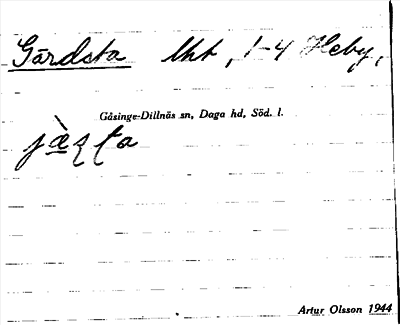 Gärdsta lht, 1-4 Heby,
Gåsinge-Dillnäs sn, Daga hd, Söd. l.
Artur Olsson 1944